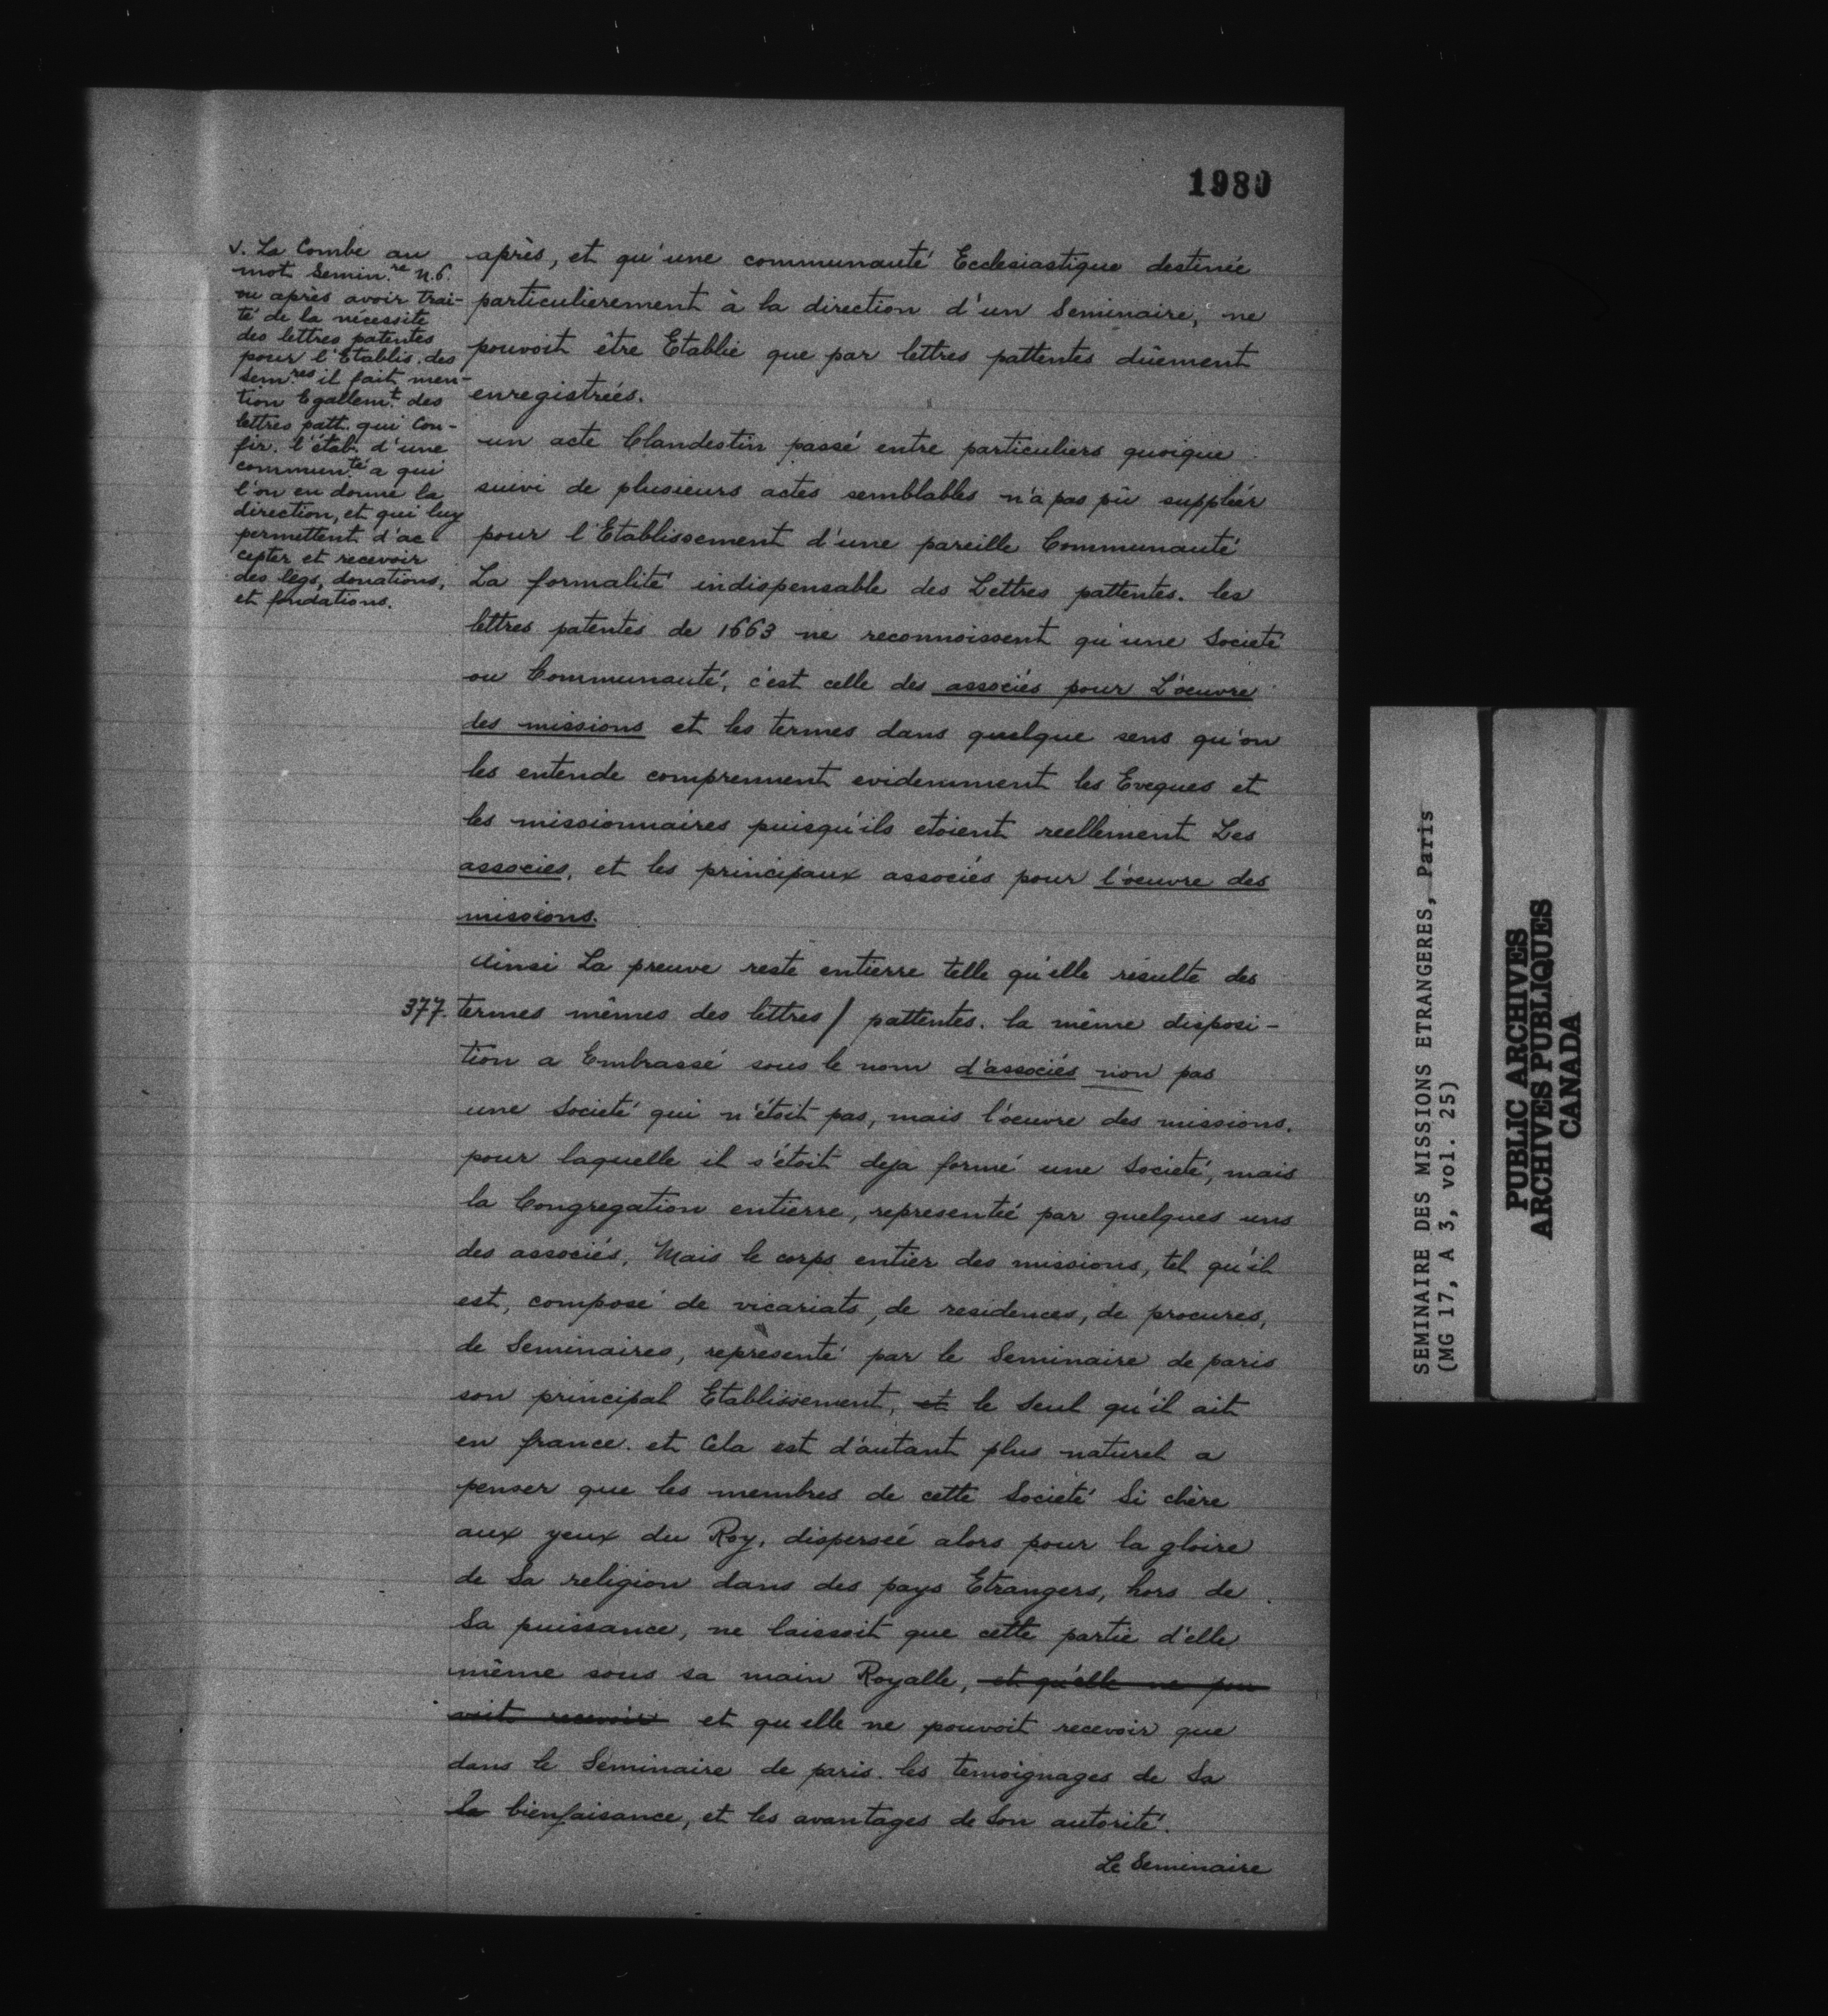 1980
v. La Combe au
mot Semin.re n.6.
ou après avoir trai-
té de la nécessité
des lettres patentes
pour l'Etablis. des
Sem.res il fait men-
tion Egallem.t des
lettres patt. qui Con-
fir. l'étab. d'une
commun.té a qui
l'on en donne la
direction, et qui luy
permettent d'ac
cepter et recevoir
des legs, donations,
et fondations.
après, et qu'une communauté Ecclesiastique destinée
particulierement à la direction d'un Seminaire, ne
pouvoit être Etablie que par lettres pattentes dûement
enregistrées.
un acte Clandestin passé entre particuliers quoique
suivi de plusieurs actes semblables n'a pas pû suppléer
pour l'Etablissement d'une pareille Communauté
La formalité indispensable des Lettres pattentes. les
lettres patentes de 1663 ne reconnoissent qu'une Societé
ou Communauté, c'est celle des associés pour L'oeuvre
des missions et les termes dans quelque sens qu'on
les entende comprennent evidemment les Eveques et
les missionnaires puisqu'ils etoient reellement Les
associes, et les principaux associés pour l'oeuvre des
missions.
Ainsi La preuve reste entierre telle qu'elle résulte des
377. termes mêmes des lettres / pattentes. la même disposi-
tion a Embrassé sous le nom d'associés non pas
une Societé qui n'étoit pas, mais l'oeuvre des missions.
pour laquelle il s'étoit deja formé une Societé, mais
la Congregation entierre, representée par quelques uns
des associés. Mais le corps entier des missions, tel qu'il
est, composé de vicariats, de residences, de procures,
de Seminaires, représenté par le Seminaire de paris
son principal Etablissement, et le Seul qu'il ait
en france. et Cela est d'autant plus naturel a
penser que les membres de cette Societé Si chère
aux yeux du Roy, dispersée alors pour la gloire
de Sa religion dans des pays Etrangers, hors de
Sa puissance, ne laissoit que cette partie d'elle
même sous sa main Royalle, et qu'elle ne pou
voit recevoir et qu elle ne pouvoit recevoir que
dans le Séminaire de paris. les temoignages de Sa
Sa bienfaisance, et les avantages de Son autorité.
Le Seminaire
SEMINAIRE DES MISSIONS ETRANGERES, Paris
(MG 17, A 3, vol. 25)
PUBLIC ARCHIVES
ARCHIVES PUBLIQUES
CANADA